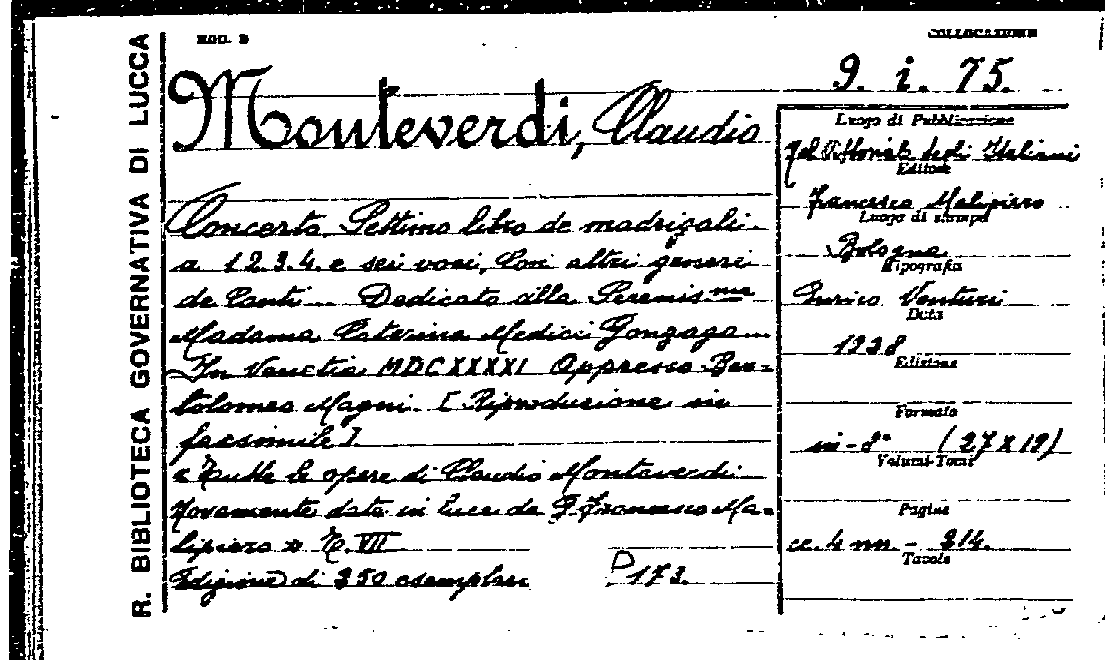 R. BIBLIOTECA GOVERNATIVA DI LUCCA
MOD. B
COLLOCAZIONE
9. i. 75.
Monteverdi, Claudio
Concerto. Settimo libro de madrigali
a 1.2.3.4. e sei voci, Con altri generi
de Canti... Dedicato alla Serenis.me
Madama Caterina Medici Gonzaga...
In Venetia MDCXXXXI Appresso Bar-
tolomeo Magni. [Riproduzione in
facsimile]
« Tutte le opere di Claudio Monteverdi
Novamente date in luce da G. Francesco Ma-
lipiero » T. VII
Edizione di 250 esemplari
P 173.
Luogo di Pubblicazione
Nel Vittoriale degli Italiani
Editore
Francesco Malipiero
Luogo di stampa
Bologna
Tipografia
Enrico Venturi
Data
1938
Edizione
Formato
in-8° (27 x 19)
Volumi-Tomi
Pagine
cc. 4 nn. - 214.
Tavole